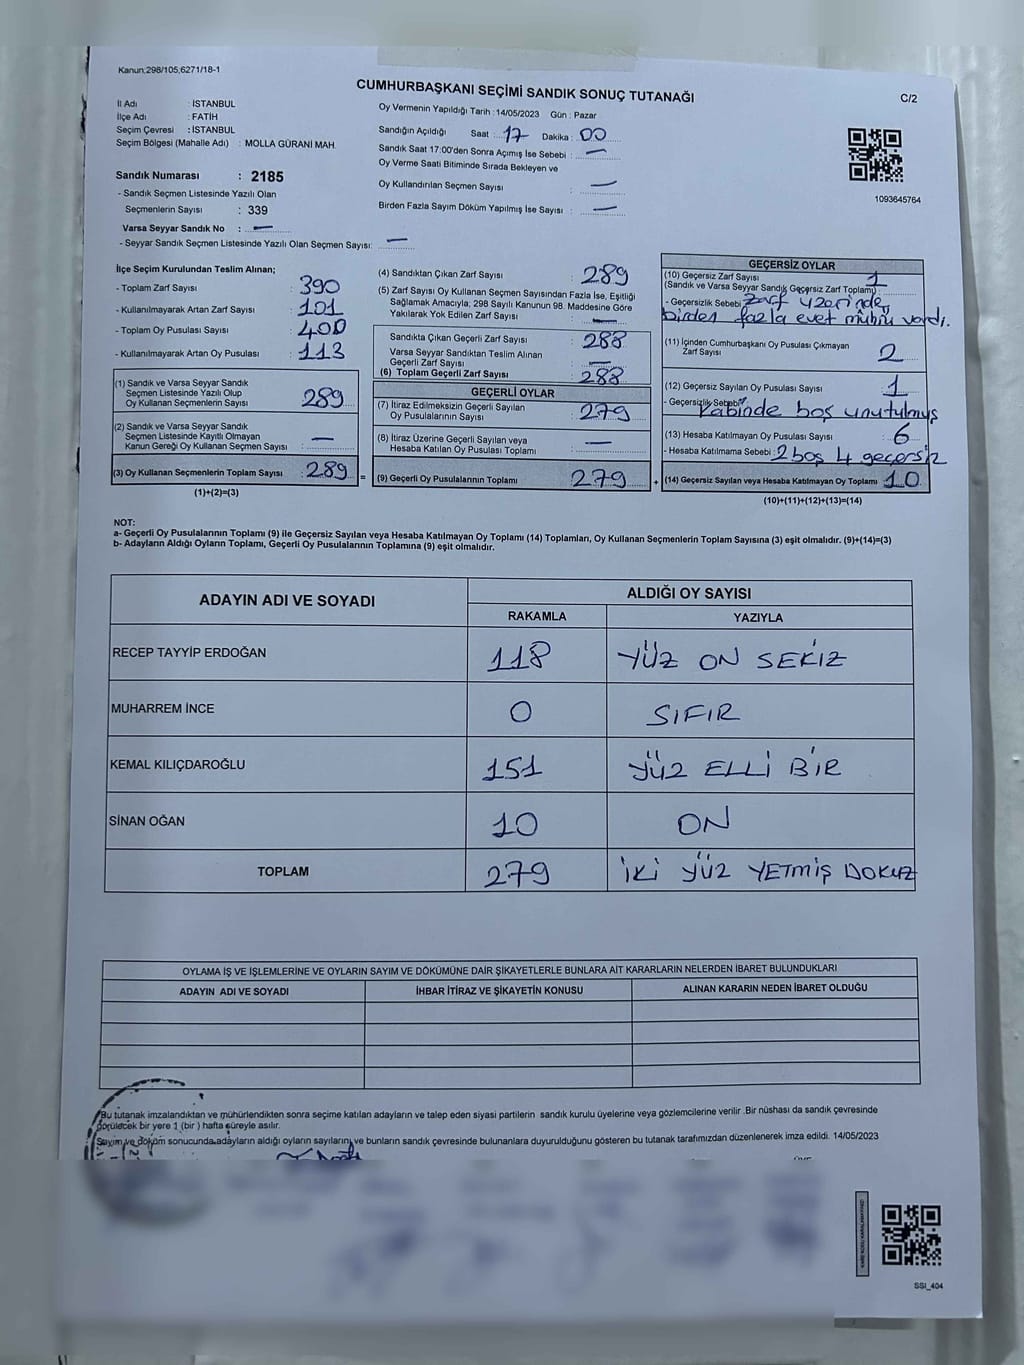 Kanun;298/105,6271/18-1
CUMHURBAŞKANI SEÇİMİ SANDIK SONUÇ TUTANAĞI
C/2
İl Adı : İSTANBUL
İlçe Adı : FATİH
Seçim Çevresi : İSTANBUL
Seçim Bölgesi (Mahalle Adı) : MOLLA GÜRANİ MAH.
Sandık Numarası : 2185
- Sandık Seçmen Listesinde Yazılı Olan
Seçmenlerin Sayısı : 339
Varsa Seyyar Sandık No : —
- Seyyar Sandık Seçmen Listesinde Yazılı Olan Seçmen Sayısı: —
Oy Vermenin Yapıldığı Tarih :14/05/2023 Gün : Pazar
Sandığın Açıldığı Saat : 17 Dakika : 00
Sandık Saat 17:00'den Sonra Açmış İse Sebebi : —
Oy Verme Saati Bitiminde Sırada Bekleyen ve
Oy Kullandırılan Seçmen Sayısı : —
Birden Fazla Sayım Döküm Yapılmış İse Sayısı : —
1093645764
İlçe Seçim Kurulundan Teslim Alınan;
- Toplam Zarf Sayısı : 390
- Kullanılmayarak Artan Zarf Sayısı : 101
- Toplam Oy Pusulası Sayısı : 400
- Kullanılmayarak Artan Oy Pusulası : 113
(1) Sandık ve Varsa Seyyar Sandık
Seçmen Listesinde Yazılı Olup
Oy Kullanan Seçmenlerin Sayısı : 289
(2) Sandık ve Varsa Seyyar Sandık
Seçmen Listesinde Kayıtlı Olmayan
Kanun Gereği Oy Kullanan Seçmen Sayısı : —
(3) Oy Kullanan Seçmenlerin Toplam Sayısı : 289 =
(1)+(2)=(3)
(4) Sandıktan Çıkan Zarf Sayısı : 289
(5) Zarf Sayısı Oy Kullanan Seçmen Sayısından Fazla İse, Eşitliği
Sağlamak Amacıyla; 298 Sayılı Kanunun 98. Maddesine Göre
Yakılarak Yok Edilen Zarf Sayısı : —
Sandıkta Çıkan Geçerli Zarf Sayısı : 288
Varsa Seyyar Sandıktan Teslim Alınan
Geçerli Zarf Sayısı : —
(6) Toplam Geçerli Zarf Sayısı : 288
GEÇERLİ OYLAR
(7) İtiraz Edilmeksizin Geçerli Sayılan
Oy Pusulasının Sayısı : 279
(8) İtiraz Üzerine Geçerli Sayılan veya
Hesaba Katılan Oy Pusulası Toplamı : —
(9) Geçerli Oy Pusulalarının Toplamı 279 +
GEÇERSİZ OYLAR
(10) Geçersiz Zarf Sayısı 1
(Sandık ve Varsa Seyyar Sandık Geçersiz Zarf Toplamı) :
- Geçersizlik Sebebi : Zarf üzerinde
birden fazla evet mührü vardı.
(11) İçinden Cumhurbaşkanı Oy Pusulası Çıkmayan
Zarf Sayısı : 2
(12) Geçersiz Sayılan Oy Pusulası Sayısı : 1
- Geçersizlik Sebebi : Kabinde boş unutulmuş
(13) Hesaba Katılmayan Oy Pusulası Sayısı : 6
- Hesaba Katılmama Sebebi : 2 boş 4 geçersiz
(14) Geçersiz Sayılan veya Hesaba Katılmayan Oy Toplamı 10
(10)+(11)+(12)+(13)=(14)
NOT:
a- Geçerli Oy Pusulalarının Toplamı (9) ile Geçersiz Sayılan veya Hesaba Katılmayan Oy Toplamı (14) Toplamları, Oy Kullanan Seçmenlerin Toplam Sayısına (3) eşit olmalıdır. (9)+(14)=(3)
b- Adayların Aldığı Oyların Toplamı, Geçerli Oy Pusulalarının Toplamına (9) eşit olmalıdır.
ADAYIN ADI VE SOYADI
ALDIĞI OY SAYISI
RAKAMLA YAZIYLA
RECEP TAYYİP ERDOĞAN 118 YÜZ ON SEKİZ
MUHARREM İNCE 0 SIFIR
KEMAL KILIÇDAROĞLU 151 YÜZ ELLİ BİR
SİNAN OĞAN 10 ON
TOPLAM 279 İKİ YÜZ YETMİŞ DOKUZ
OYLAMA İŞ VE İŞLEMLERİNE VE OYLARIN SAYIM VE DÖKÜMÜNE DAİR ŞİKAYETLERLE BUNLARA AİT KARARLARIN NELERDEN İBARET BULUNDUKLARI
ADAYIN ADI VE SOYADI İHBAR İTİRAZ VE ŞİKAYETİN KONUSU ALINAN KARARIN NEDEN İBARET OLDUĞU
Bu tutanak imzalandıktan ve mühürlendikten sonra seçime katılan adayların ve talep eden siyasi partilerin sandık kurulu üyelerine veya gözlemcilerine verilir .Bir nüshası da sandık çevresinde
görülecek bir yere 1 (bir ) hafta süreyle asılır.
Sayim ve döküm sonucunda adayların aldığı oyların sayılarını ve bunların sandık çevresinde bulunanlara duyurulduğunu gösteren bu tutanak tarafımızdan düzenlenerek imza edildi. 14/05/2023
SSI_404